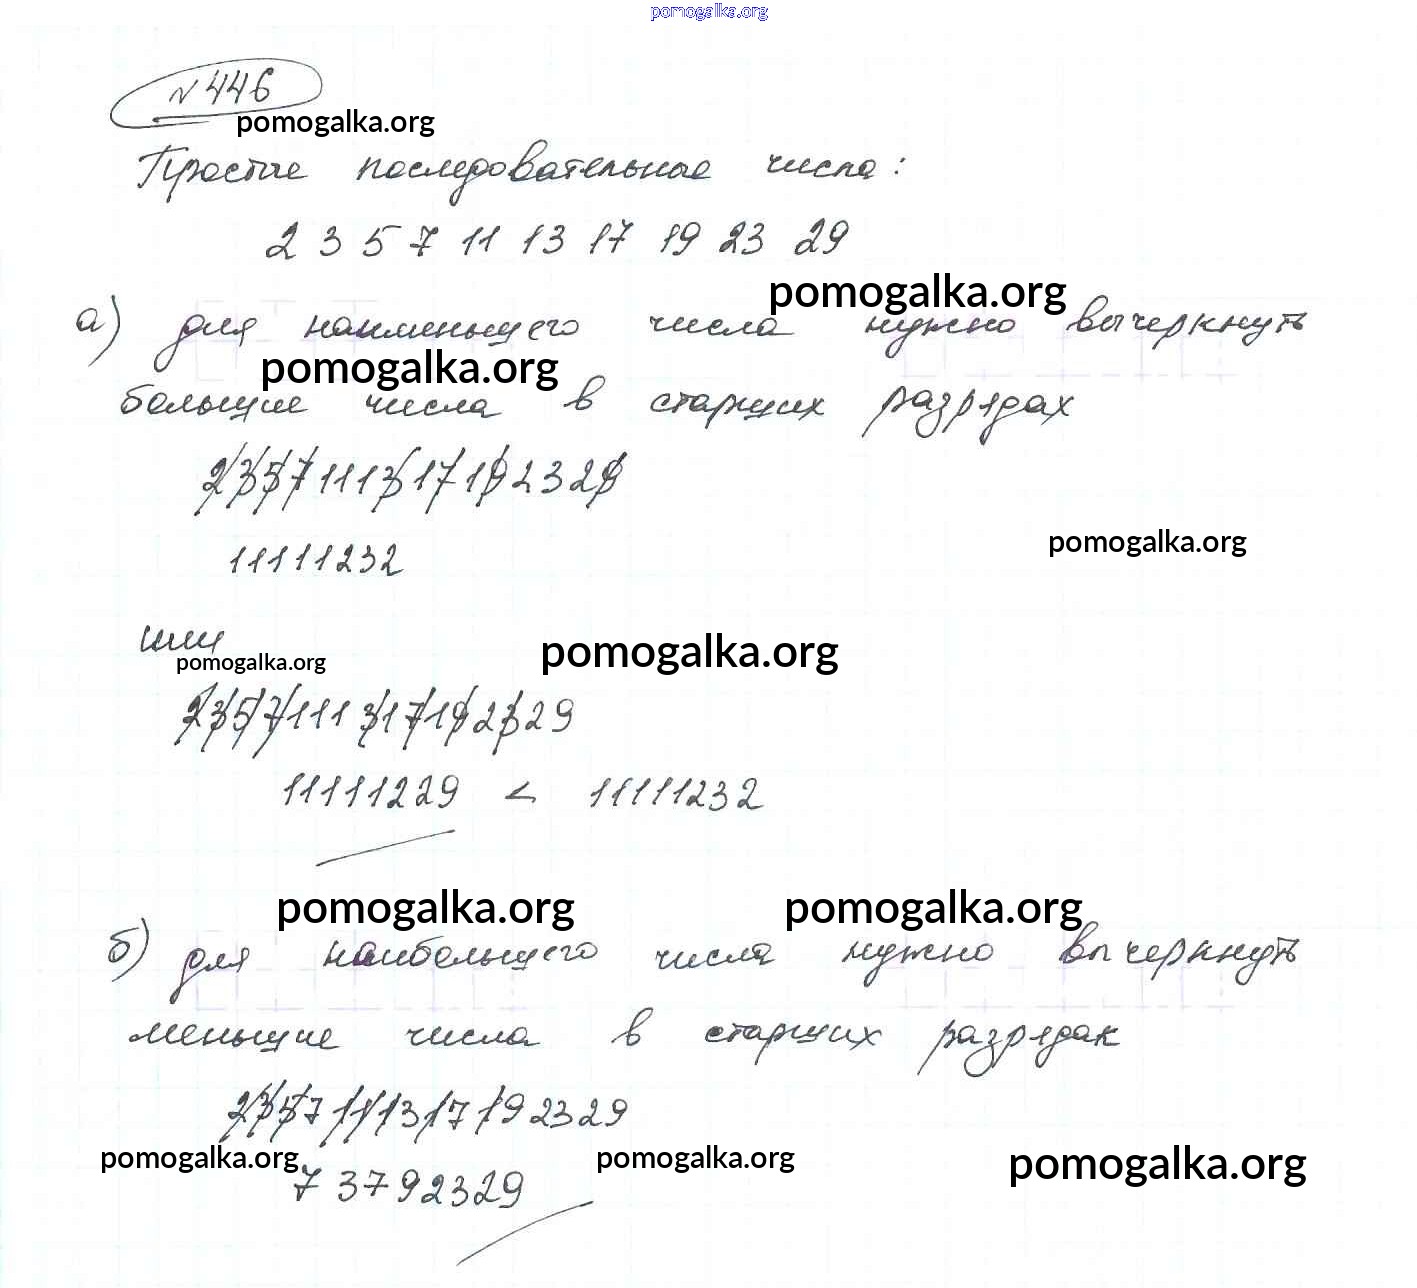 pomogalka.org
№446
pomogalka.org
Простые последовательные числа:
2 3 5 7 11 13 17 19 23 29
pomogalka.org
а) для наименьшего числа нужно вычеркнуть
pomogalka.org
большие числа в старших разрядах
2357111317192329
11111232
pomogalka.org
или
pomogalka.org
pomogalka.org
2357111317192329
11111229 < 11111232
pomogalka.org
pomogalka.org
б) для наибольшего числа нужно вычеркнуть
меньшие числа в старших разрядах
2357111317192329
pomogalka.org
pomogalka.org
pomogalka.org
73792329